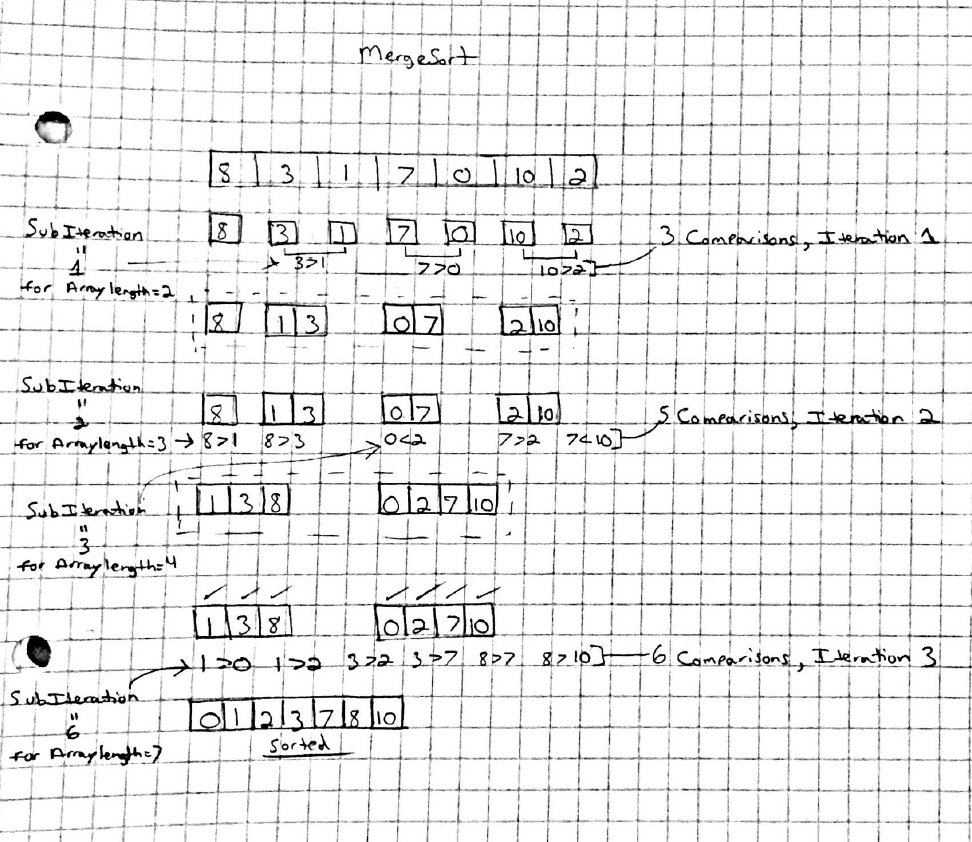 MergeSort
8 3 1 7 0 10 2
SubIteration
"
1
for Array length=2
8 3 1 7 0 10 2
3>1 7>0 10>2] 3 Comparisons, Iteration 1
8 1 3 0 7 2 10
SubIteration
"
2
for Arraylength=3 →
8 1 3 0 7 2 10
8>1 8>3 0<2 7>2 7<10] 5 Comparisons, Iteration 2
SubIteration
"
3
for Arraylength=4
1 3 8 0 2 7 10
1 3 8 0 2 7 10
1>0 1>2 3>2 3>7 8>7 8>10] 6 Comparisons, Iteration 3
SubIteration
"
6
for Arraylength=7
0 1 2 3 7 8 10
Sorted